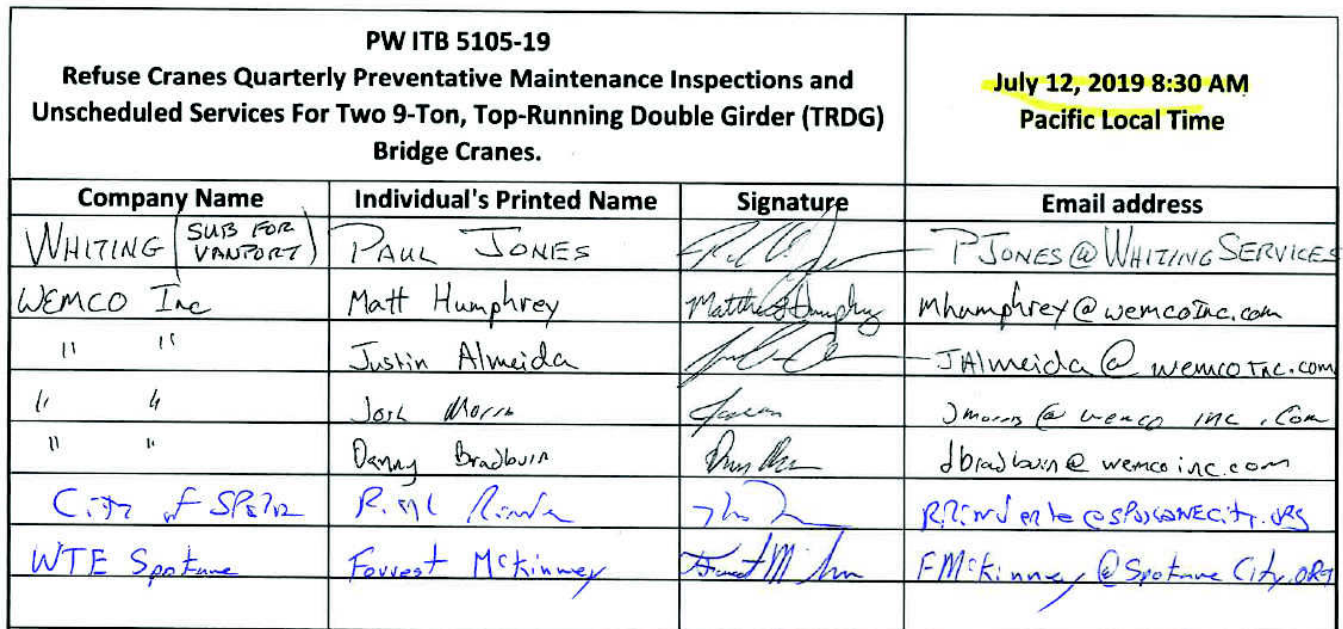 PW ITB 5105-19
Refuse Cranes Quarterly Preventative Maintenance Inspections and
Unscheduled Services For Two 9-Ton, Top-Running Double Girder (TRDG)
Bridge Cranes.
July 12, 2019 8:30 AM
Pacific Local Time
Company Name Individual's Printed Name Signature Email address
WHITING (SUB FOR VANPORT) PAUL JONES PJONES@WHITINGSERVICES
WEMCO Inc Matt Humphrey Matthew Humphrey mhumphrey@wemcoInc.com
" " Justin Almeida JAlmeida@wemcoInc.com
" " Josh Morris Jmorris@wemcoinc.com
" " Danny
City of
WTE Spokane Forrest McKinney FMcKinney@SpokaneCity.ORG